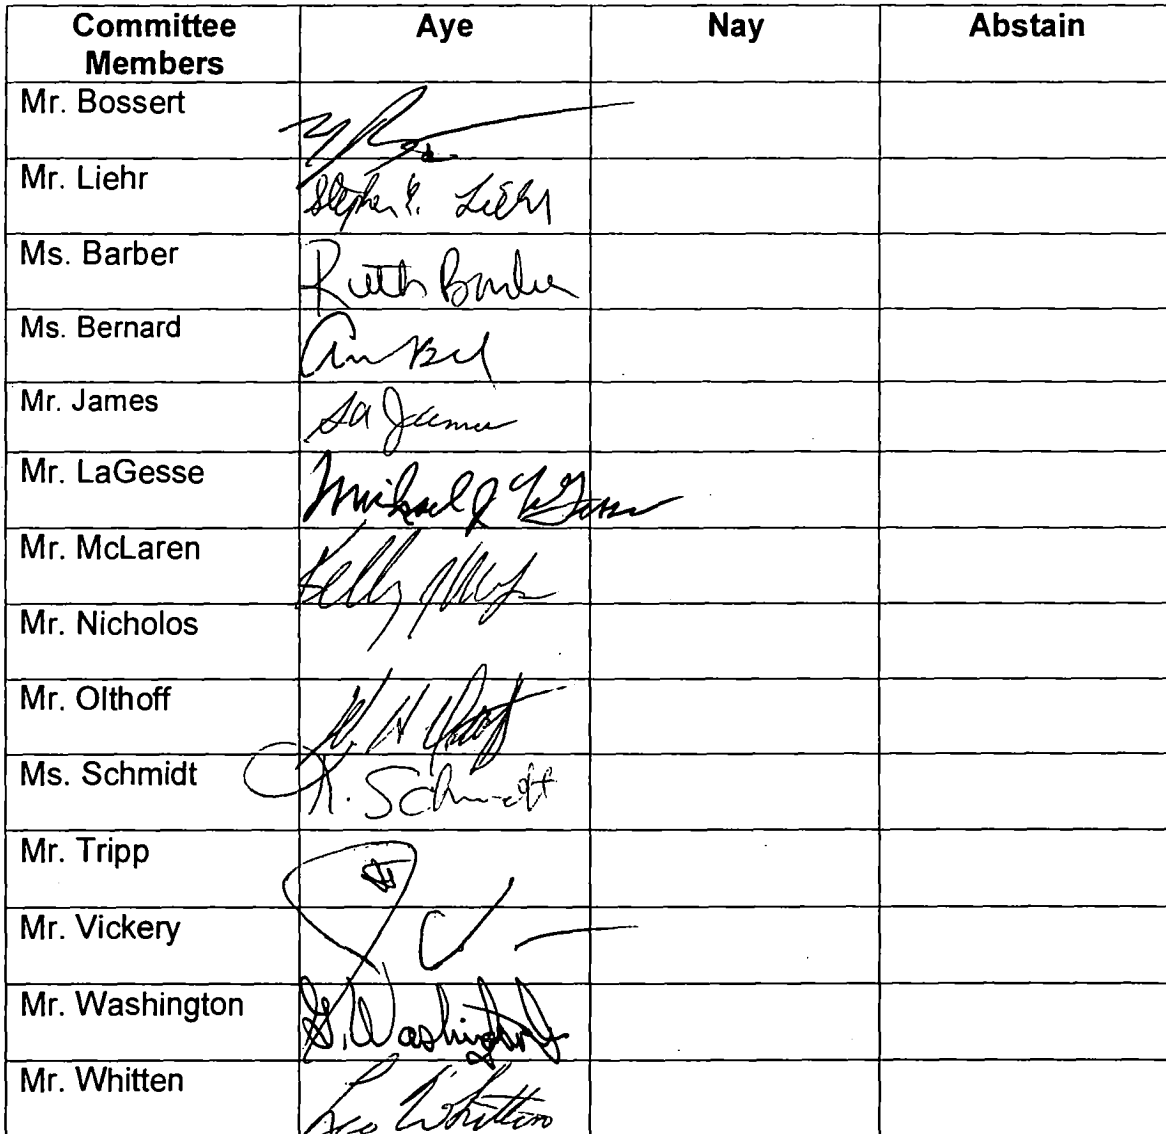 Committee Members Aye Nay Abstain
Mr. Bossert
Mr. Liehr Stephen E. Liehr
Ms. Barber Ruth Barber
Ms. Bernard
Mr. James
Mr. LaGesse Michael J LaGesse
Mr. McLaren Kelly
Mr. Nicholos
Mr. Olthoff
Ms. Schmidt K. Schmidt
Mr. Tripp
Mr. Vickery
Mr. Washington G. Washington
Mr. Whitten Leo Whitten